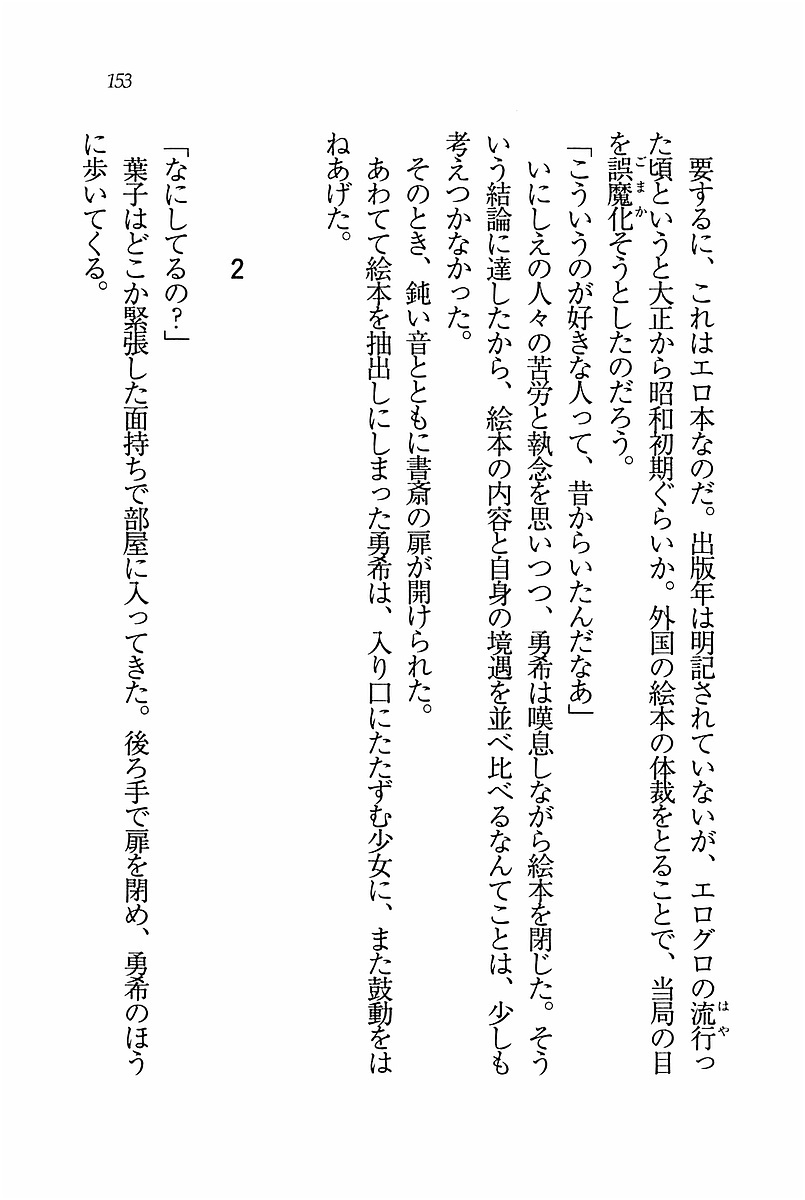 153
要するに、これはエロ本なのだ。出版年は明記されていないが、エログロの流行っ
た頃というと大正から昭和初期ぐらいか。外国の絵本の体裁をとることで、当局の目
を誤魔化そうとしたのだろう。
「こういうのが好きな人って、昔からいたんだなあ」
いにしえの人々の苦労と執念を思いつつ、勇希は嘆息しながら絵本を閉じた。そう
いう結論に達したから、絵本の内容と自身の境遇を並べ比べるなんてことは、少しも
考えつかなかった。
そのとき、鈍い音とともに書斎の扉が開けられた。
あわてて絵本を抽出しにしまった勇希は、入り口にたたずむ少女に、また鼓動をは
ねあげた。
2
「なにしてるの?」
葉子はどこか緊張した面持ちで部屋に入ってきた。後ろ手で扉を閉め、勇希のほう
に歩いてくる。